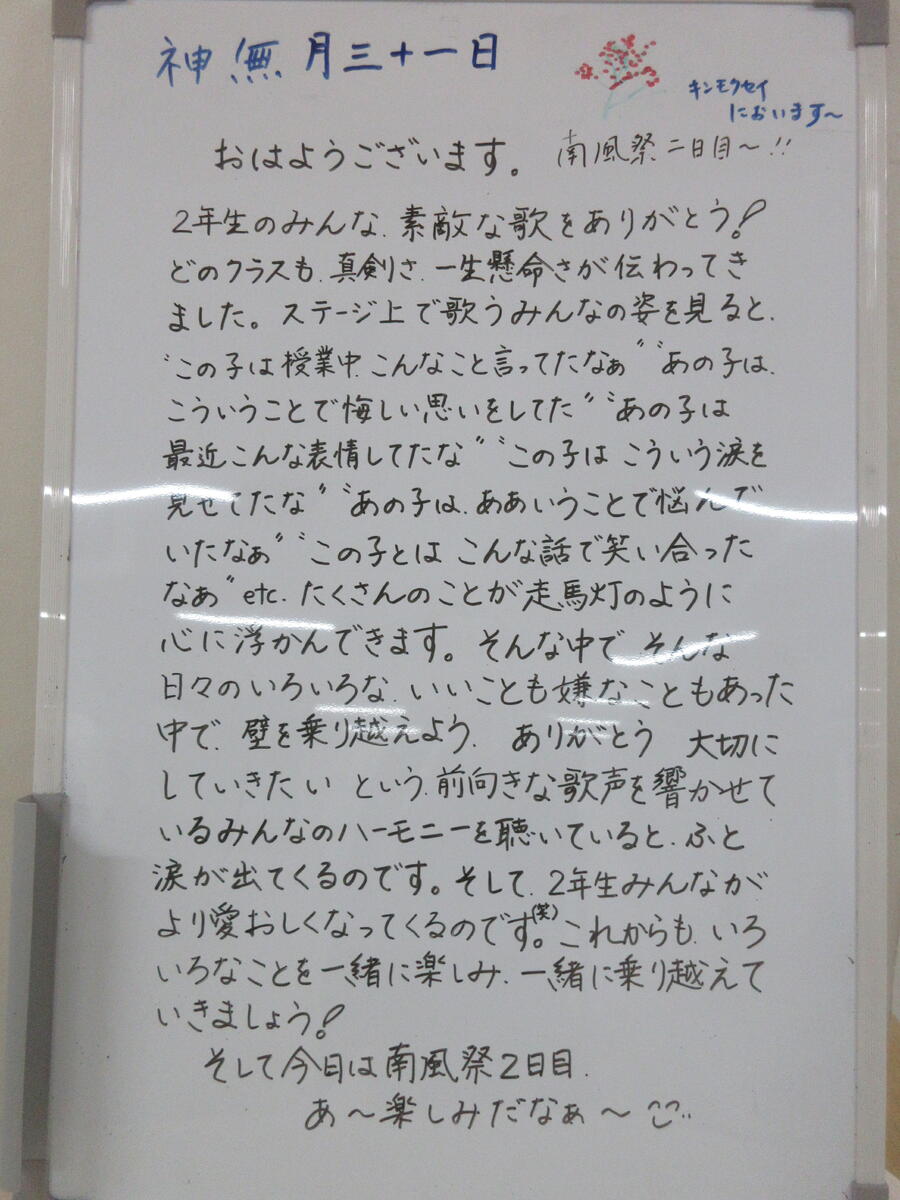 神無月三十一日
キンモクセイ
においます〜
おはようございます。 南風祭二日目〜!!
2年生のみんな、素敵な歌をありがとう!
どのクラスも、真剣さ、一生懸命さが伝わってき
ました。ステージ上で歌うみんなの姿を見ると、
〝この子は授業中、こんなこと言ってたなぁ〞〝あの子は、
こういうことで悔しい思いをしてた〞〝あの子は
最近こんな表情してたな〞〝この子は こういう涙を
見せてたな〞〝あの子は、ああいうことで悩んで
いたなぁ〞〝この子とは こんな話で笑い合った
なぁ〞etc. たくさんのことが走馬灯のように
心に浮かんできます。そんな中で そんな
日々のいろいろな、いいことも嫌なこともあった
中で、壁を乗り越えよう、 ありがとう 大切に
していきたい という、前向きな歌声を響かせて
いるみんなのハーモニーを聴いていると、ふと
涙が出てくるのです。そして、2年生みんなが
より愛おしくなってくるのです。(笑) これからも、いろ
いろなことを一緒に楽しみ、一緒に乗り越えて
いきましょう!
そして今日は南風祭2日目、
あ〜楽しみだなぁ〜